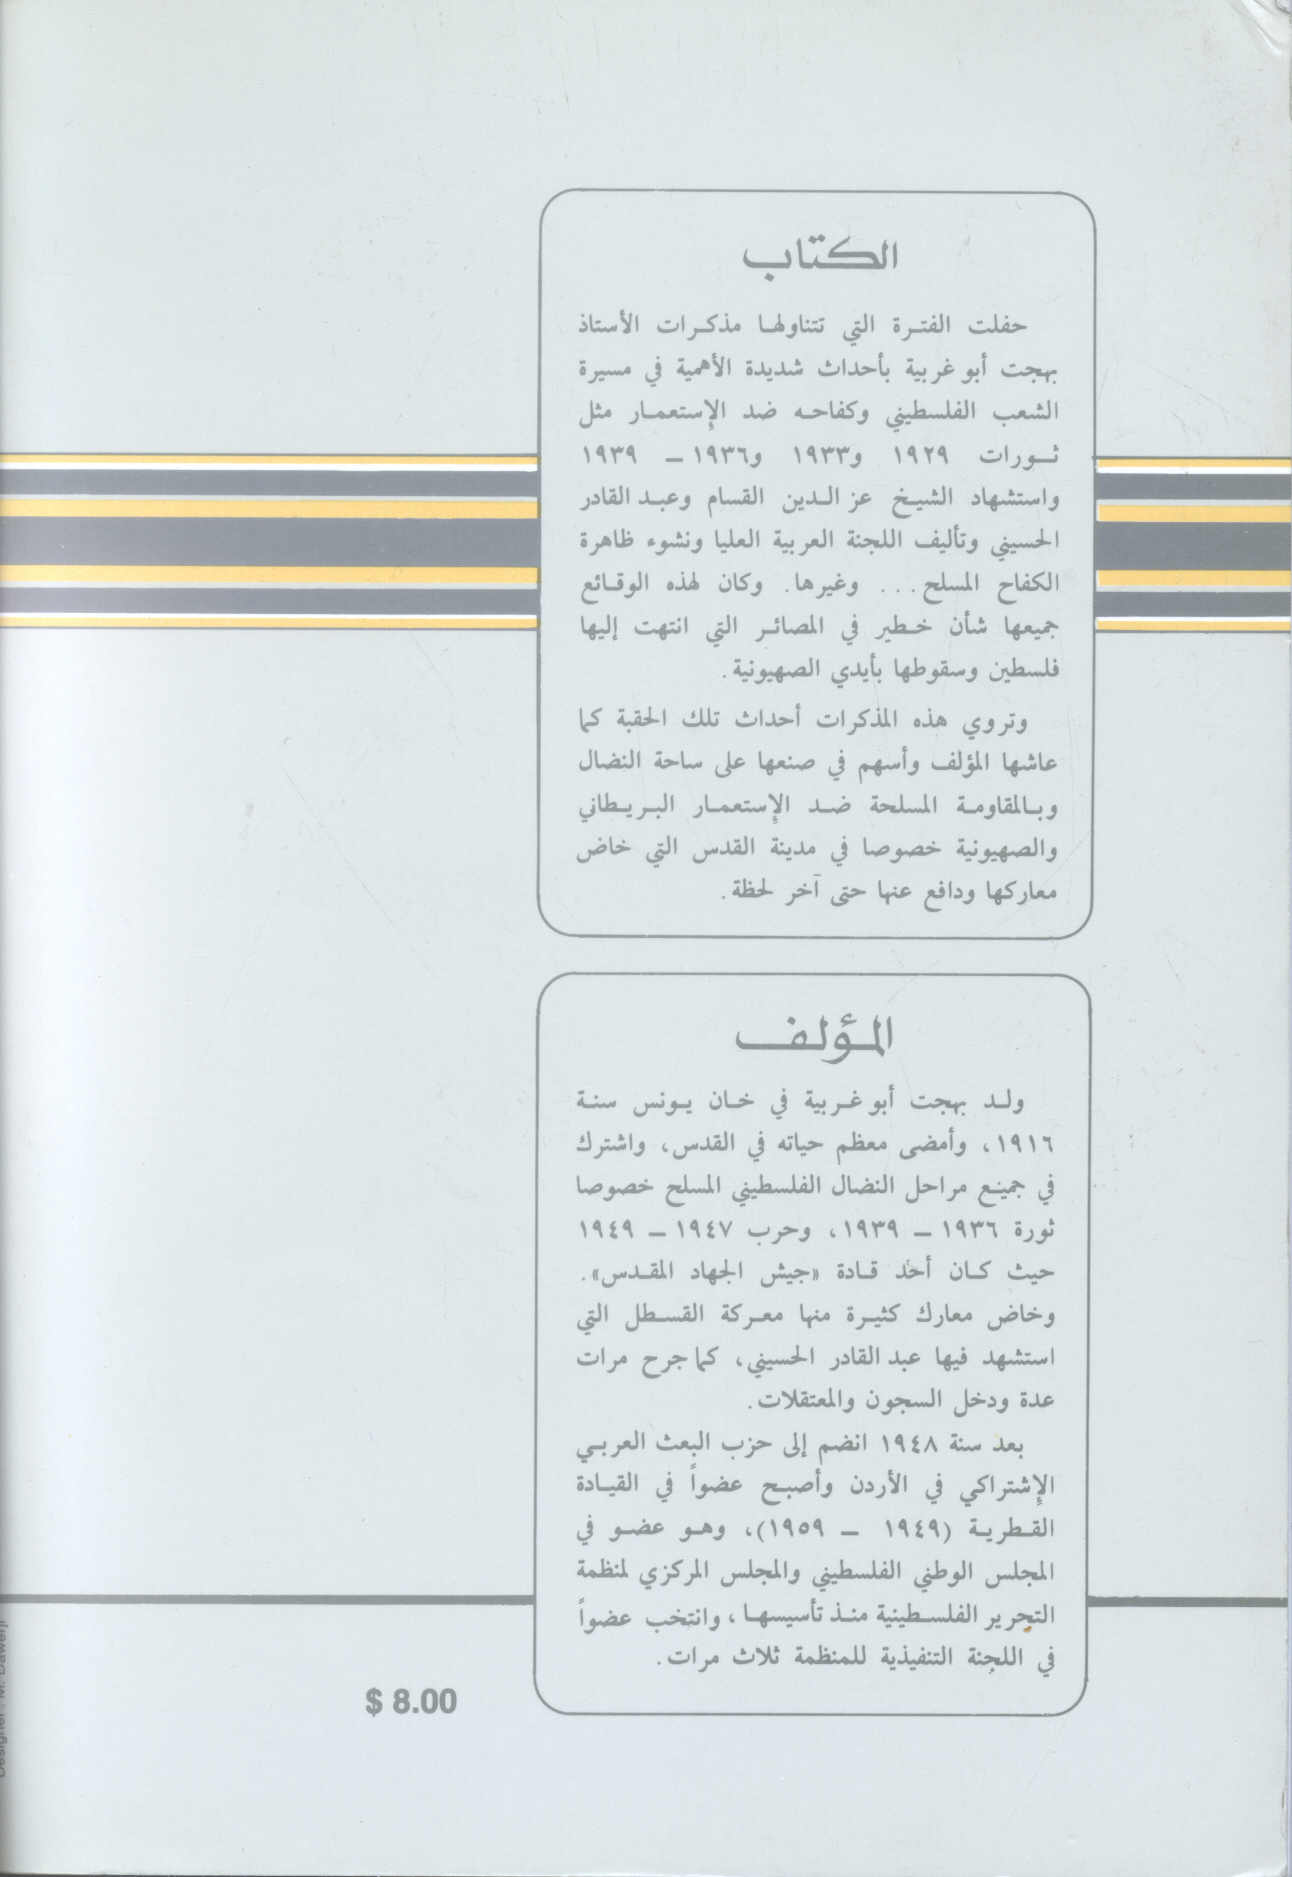 الكتاب
حفلت الفترة التي تتناولها مذكرات الأستاذ
بهجت أبو غربية بأحداث شديدة الأهمية في مسيرة
الشعب الفلسطيني وكفاحه ضد الإستعمار مثل
ثورات ١٩٢٩ و١٩٣٣ و١٩٣٦ – ١٩٣٩
واستشهاد الشيخ عز الدين القسام وعبد القادر
الحسيني وتأليف اللجنة العربية العليا ونشوء ظاهرة
الكفاح المسلح... وغيرها. وكان لهذه الوقائع
جميعها شأن خطير في المصائر التي انتهت إليها
فلسطين وسقوطها بأيدي الصهيونية.
وتروي هذه المذكرات أحداث تلك الحقبة كما
عاشها المؤلف وأسهم في صنعها على ساحة النضال
وبالمقاومة المسلحة ضد الإستعمار البريطاني
والصهيونية خصوصا في مدينة القدس التي خاض
معاركها ودافع عنها حتى آخر لحظة.
المؤلف
ولد بهجت أبو غربية في خان يونس سنة
١٩١٦، وأمضى معظم حياته في القدس، واشترك
في جميع مراحل النضال الفلسطيني المسلح خصوصا
ثورة ١٩٣٦ – ١٩٣٩، وحرب ١٩٤٧ – ١٩٤٩
حيث كان أحد قادة «جيش الجهاد المقدس».
وخاض معارك كثيرة منها معركة القسطل التي
استشهد فيها عبد القادر الحسيني، كما جرح مرات
عدة ودخل السجون والمعتقلات.
بعد سنة ١٩٤٨ انضم إلى حزب البعث العربي
الإشتراكي في الأردن وأصبح عضواً في القيادة
القطرية (١٩٤٩ – ١٩٥٩)، وهو عضو في
المجلس الوطني الفلسطيني والمجلس المركزي لمنظمة
التحرير الفلسطينية منذ تأسيسها، وانتخب عضواً
في اللجنة التنفيذية للمنظمة ثلاث مرات.
$ 8.00
Designer : M. Dawerji